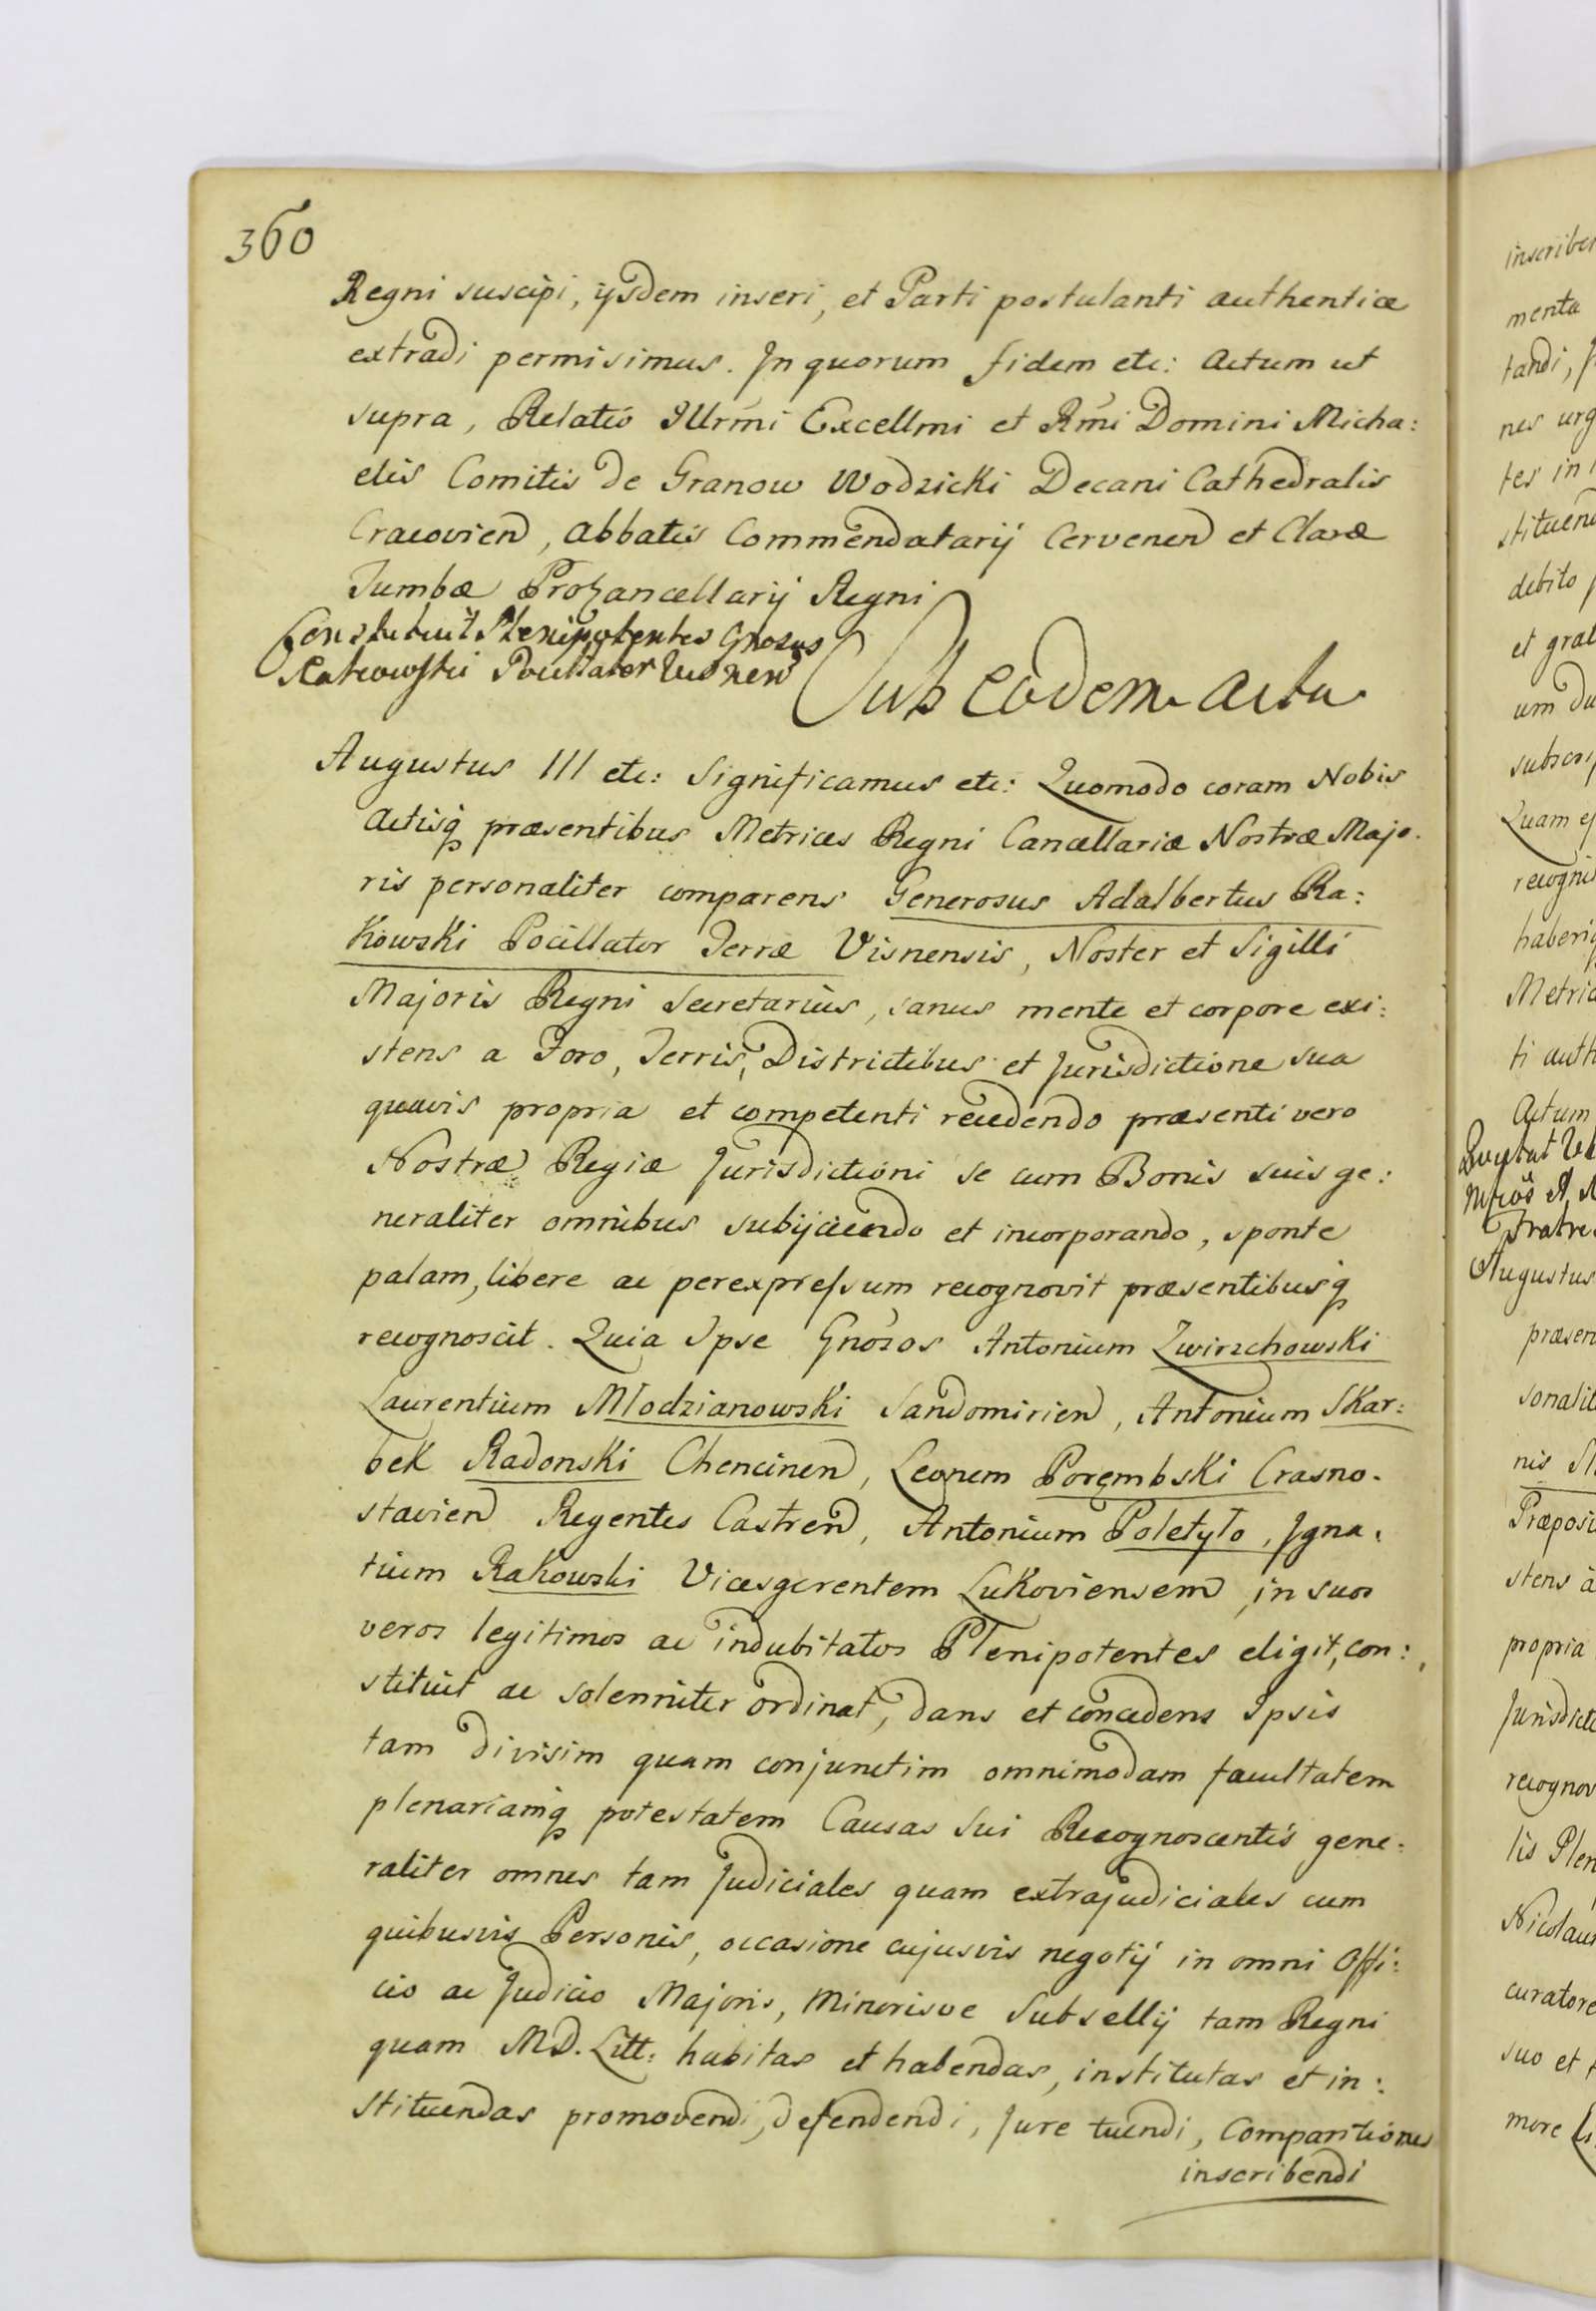 360
Regni suscipi, ijsdem inseri, et Parti postulanti authentice
extradi permisimus. In quorum fidem etc: Actum ut
supra, Relatio Illrmi Excellmi et Rmi Domini Micha:
elis Comitis de Granow Wodzicki Decani Cathedralis
Cracovien, Abbatis Commendatarij Cervenen et Claræ
Tumbæ ProCancellarij Regni
Constituit Plenipotentes Gnosus
Rakowski Pocillator Visnen
Sub eodem actu
Augustus III etc: Significamus etc: Quomodo coram Nobis
Actisq præsentibus Metrices Regni Cancellariæ Nostræ Majo.
ris personaliter comparens Generosus Adalbertus Ra:
kowski Pocillator Terræ Visnensis, Noster et Sigilli
Majoris Regni Secretarius, sanus mente et corpore exi:
stens a Foro, Terris, Districtibus et Jurisdictione sua
quavis propria et competenti recedendo præsenti vero
Nostræ Regiæ Jurisdictioni se cum Bonis suis ge:
neraliter omnibus subijciendo et incorporando, sponte
palam, libere ac per expressum recognovit præsentibusq
recognoscit. Quia Ipse Gnosos Antonium Zwirzchowski
Laurentium Młodzianowski Sandomirien, Antonium Skar:
bek Radonski Chencinen, Leonem Porembski Crasno.
stavien Regentes Castren, Antonium Poletyło, Igna.
tium Rakowski Vicesgerentem Lukoviensem, in suos
veros legitimos ac indubitatos Plenipotentes eligit, con:
stituit ac solenniter ordinat, dans et concedens Ipsis
tam divisim quam conjunctim omnimodam facultatem
plenariamq potestatem Causas Sui Recognoscentis gene:
raliter omnes tam Judiciales quam extrajudiciales cum
quibusvis Personis, occasione cujusvis negotij in omni Offi:
cio ac Judicio Majoris, Minorisve Subsellij tam Regni
quam M.D. Litt: habitas et habendas, institutas et in:
stituendas promovendi, defendendi, Jure tuendi, Comparitiones
inscribendi